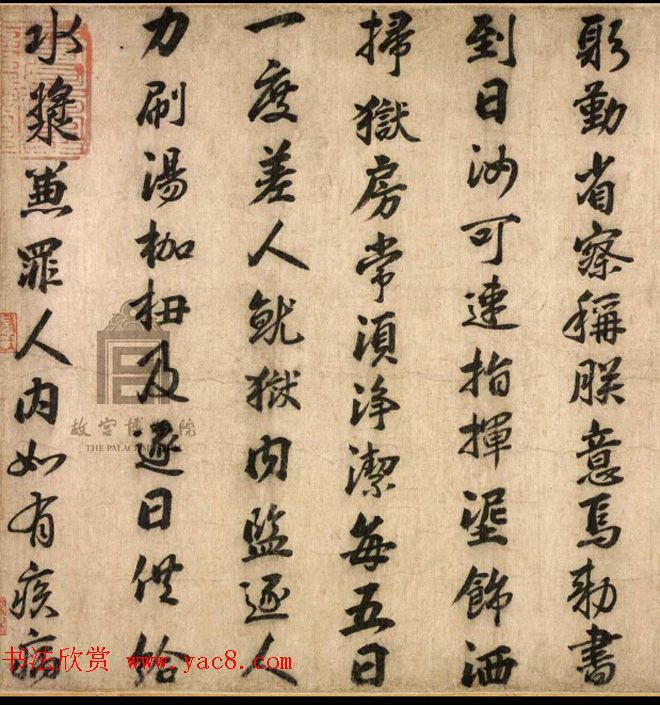 躬勤省察稱朕意焉勑書
到日汝可速指揮埿飾洒
掃獄房常須浄潔每五日
一度差人就獄内監逐人
力刷湯枷杻及逐日供給
水漿兼罪人内如有疾病
故宫博物院
THE PALACE MUSEUM
书法欣赏 www.yac8.com